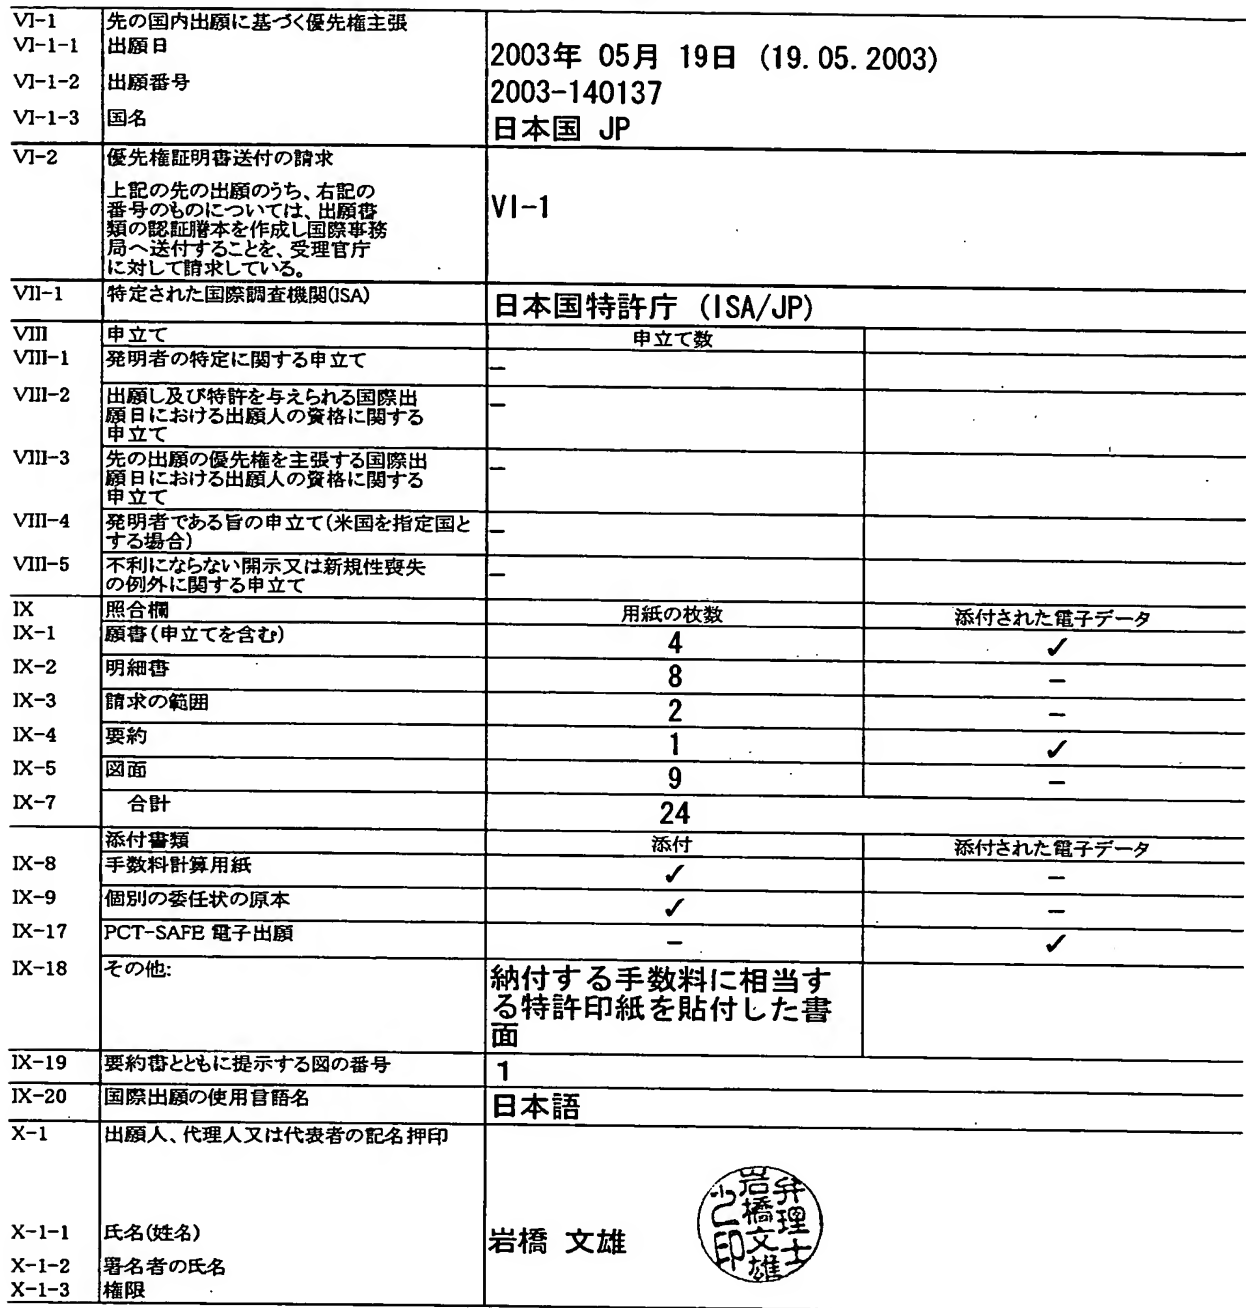 VI-1 先の国内出願に基づく優先権主張
VI-1-1 出願日 2003年 05月 19日 (19.05.2003)
VI-1-2 出願番号 2003-140137
VI-1-3 国名 日本国 JP
VI-2 優先権証明書送付の請求
上記の先の出願のうち、右記の
番号のものについては、出願書
類の認証謄本を作成し国際事務
局へ送付することを、受理官庁
に対して請求している。
VI-1
VII-1 特定された国際調査機関(ISA) 日本国特許庁 (ISA/JP)
VIII 申立て 申立て数
VIII-1 発明者の特定に関する申立て –
VIII-2 出願し及び特許を与えられる国際出
願日における出願人の資格に関する
申立て
–
VIII-3 先の出願の優先権を主張する国際出
願日における出願人の資格に関する
申立て
–
VIII-4 発明者である旨の申立て(米国を指定国と
する場合)
–
VIII-5 不利にならない開示又は新規性喪失
の例外に関する申立て
–
IX 照合欄 用紙の枚数 添付された電子データ
IX-1 願書(申立てを含む) 4 ✓
IX-2 明細書 8 –
IX-3 請求の範囲 2 –
IX-4 要約 1 ✓
IX-5 図面 9 –
IX-7 合計 24
添付書類 添付 添付された電子データ
IX-8 手数料計算用紙 ✓ –
IX-9 個別の委任状の原本 ✓ –
IX-17 PCT-SAFE 電子出願 – ✓
IX-18 その他: 納付する手数料に相当す
る特許印紙を貼付した書
面
IX-19 要約書とともに提示する図の番号 1
IX-20 国際出願の使用言語名 日本語
X-1 出願人、代理人又は代表者の記名押印
X-1-1 氏名(姓名) 岩橋 文雄
X-1-2 署名者の氏名
X-1-3 権限
弁理士
岩橋文雄
之印